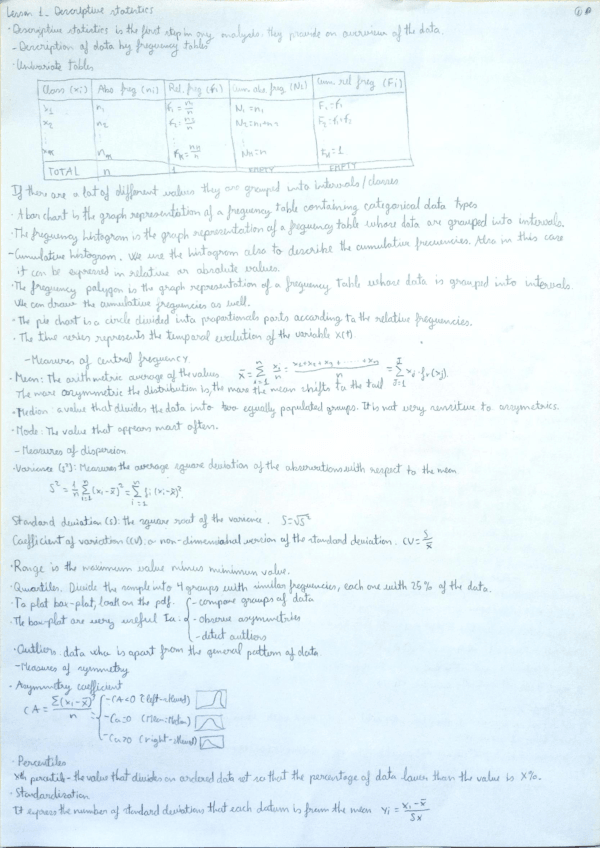 Lesson 1_ Descriptive statistics
· Descriptive statistics is the first step in any analysis. they provide an overview of the data.
- Description of data by frequency tables
· Univariate tables
Class (xi) Abs freq (ni) Rel. freq (fi) Cum. abs freq (Ni) Cum. rel freq (Fi)
x1 n1 f1 = n1/n N1 = n1 F1 = f1
x2 n2 f2 = n2/n N2 = n1+n2 F2 = f1+f2
⋮ ⋮ ⋮ ⋮ ⋮
xm nm fm = nm/n Nm = n Fm = 1
TOTAL n 1 EMPTY EMPTY
If there are a lot of different values they are grouped into intervals/classes
· A bar chart is the graph representation of a frequency table containing categorical data types
· The frequency histogram is the graph representation of a frequency table whose data are grouped into intervals.
- Cumulative histogram. We use the histogram also to describe the cumulative frecuencies. Also in this case
it can be expressed in relative or absolute values.
· The frequency polygon is the graph representation of a frequency table whose data is grouped into intervals.
We can draw the cumulative frequencies as well.
· The pie chart is a circle divided into proportionals parts according to the relative frequencies.
· The time series represents the temporal evolution of the variable x(t).
- Measures of central frequency
· Mean: The arithmetric average of the values x̄ = Σ(i=1..n) xi/n = (x1+x2+x3+.....+xn)/n = Σ(j=1..J) xj · fr(xj).
The more asymmetric the distribution is, the more the mean shifts to the tail
· Median: a value that divides the data into two equally populated groups. It is not very sensitive to assymetrics.
· Mode: The value that appears most often.
- Measures of dispersion
· Variance (s²): Measures the average square deviation of the observations with respect to the mean
S² = 1/n Σ(i=1..n) (xi-x̄)² = Σ(i=1..n) fi (xi-x̄)².
Standard deviation (s): the square root of the variance. S=√S²
Coefficient of variation (CV): a non-dimensional version of the standard deviation. CV = S/x̄
· Range is the maximum value minus minimum value.
· Quartiles. Divide the sample into 4 groups with similar frequencies, each one with 25% of the data.
· To plot box-plot, look on the pdf.
· The box-plot are very useful to:
- compare groups of data
- observe asymmetries
- detect outliers
· Outliers: data who is apart from the general pattern of data
- Measures of symmetry
- Asymmetry coefficient
CA = Σ(xi-x̄)/n
- CA<0 (left-skewed)
- Ca=0 (Mean=Median)
- Ca>0 (right-skewed)
· Percentiles
xth percentile - the value that divides an ordered data set so that the percentage of data lower than the value is X%.
· Standardization
It express the number of standard deviations that each datum is from the mean Yi = (xi-x̄)/Sx